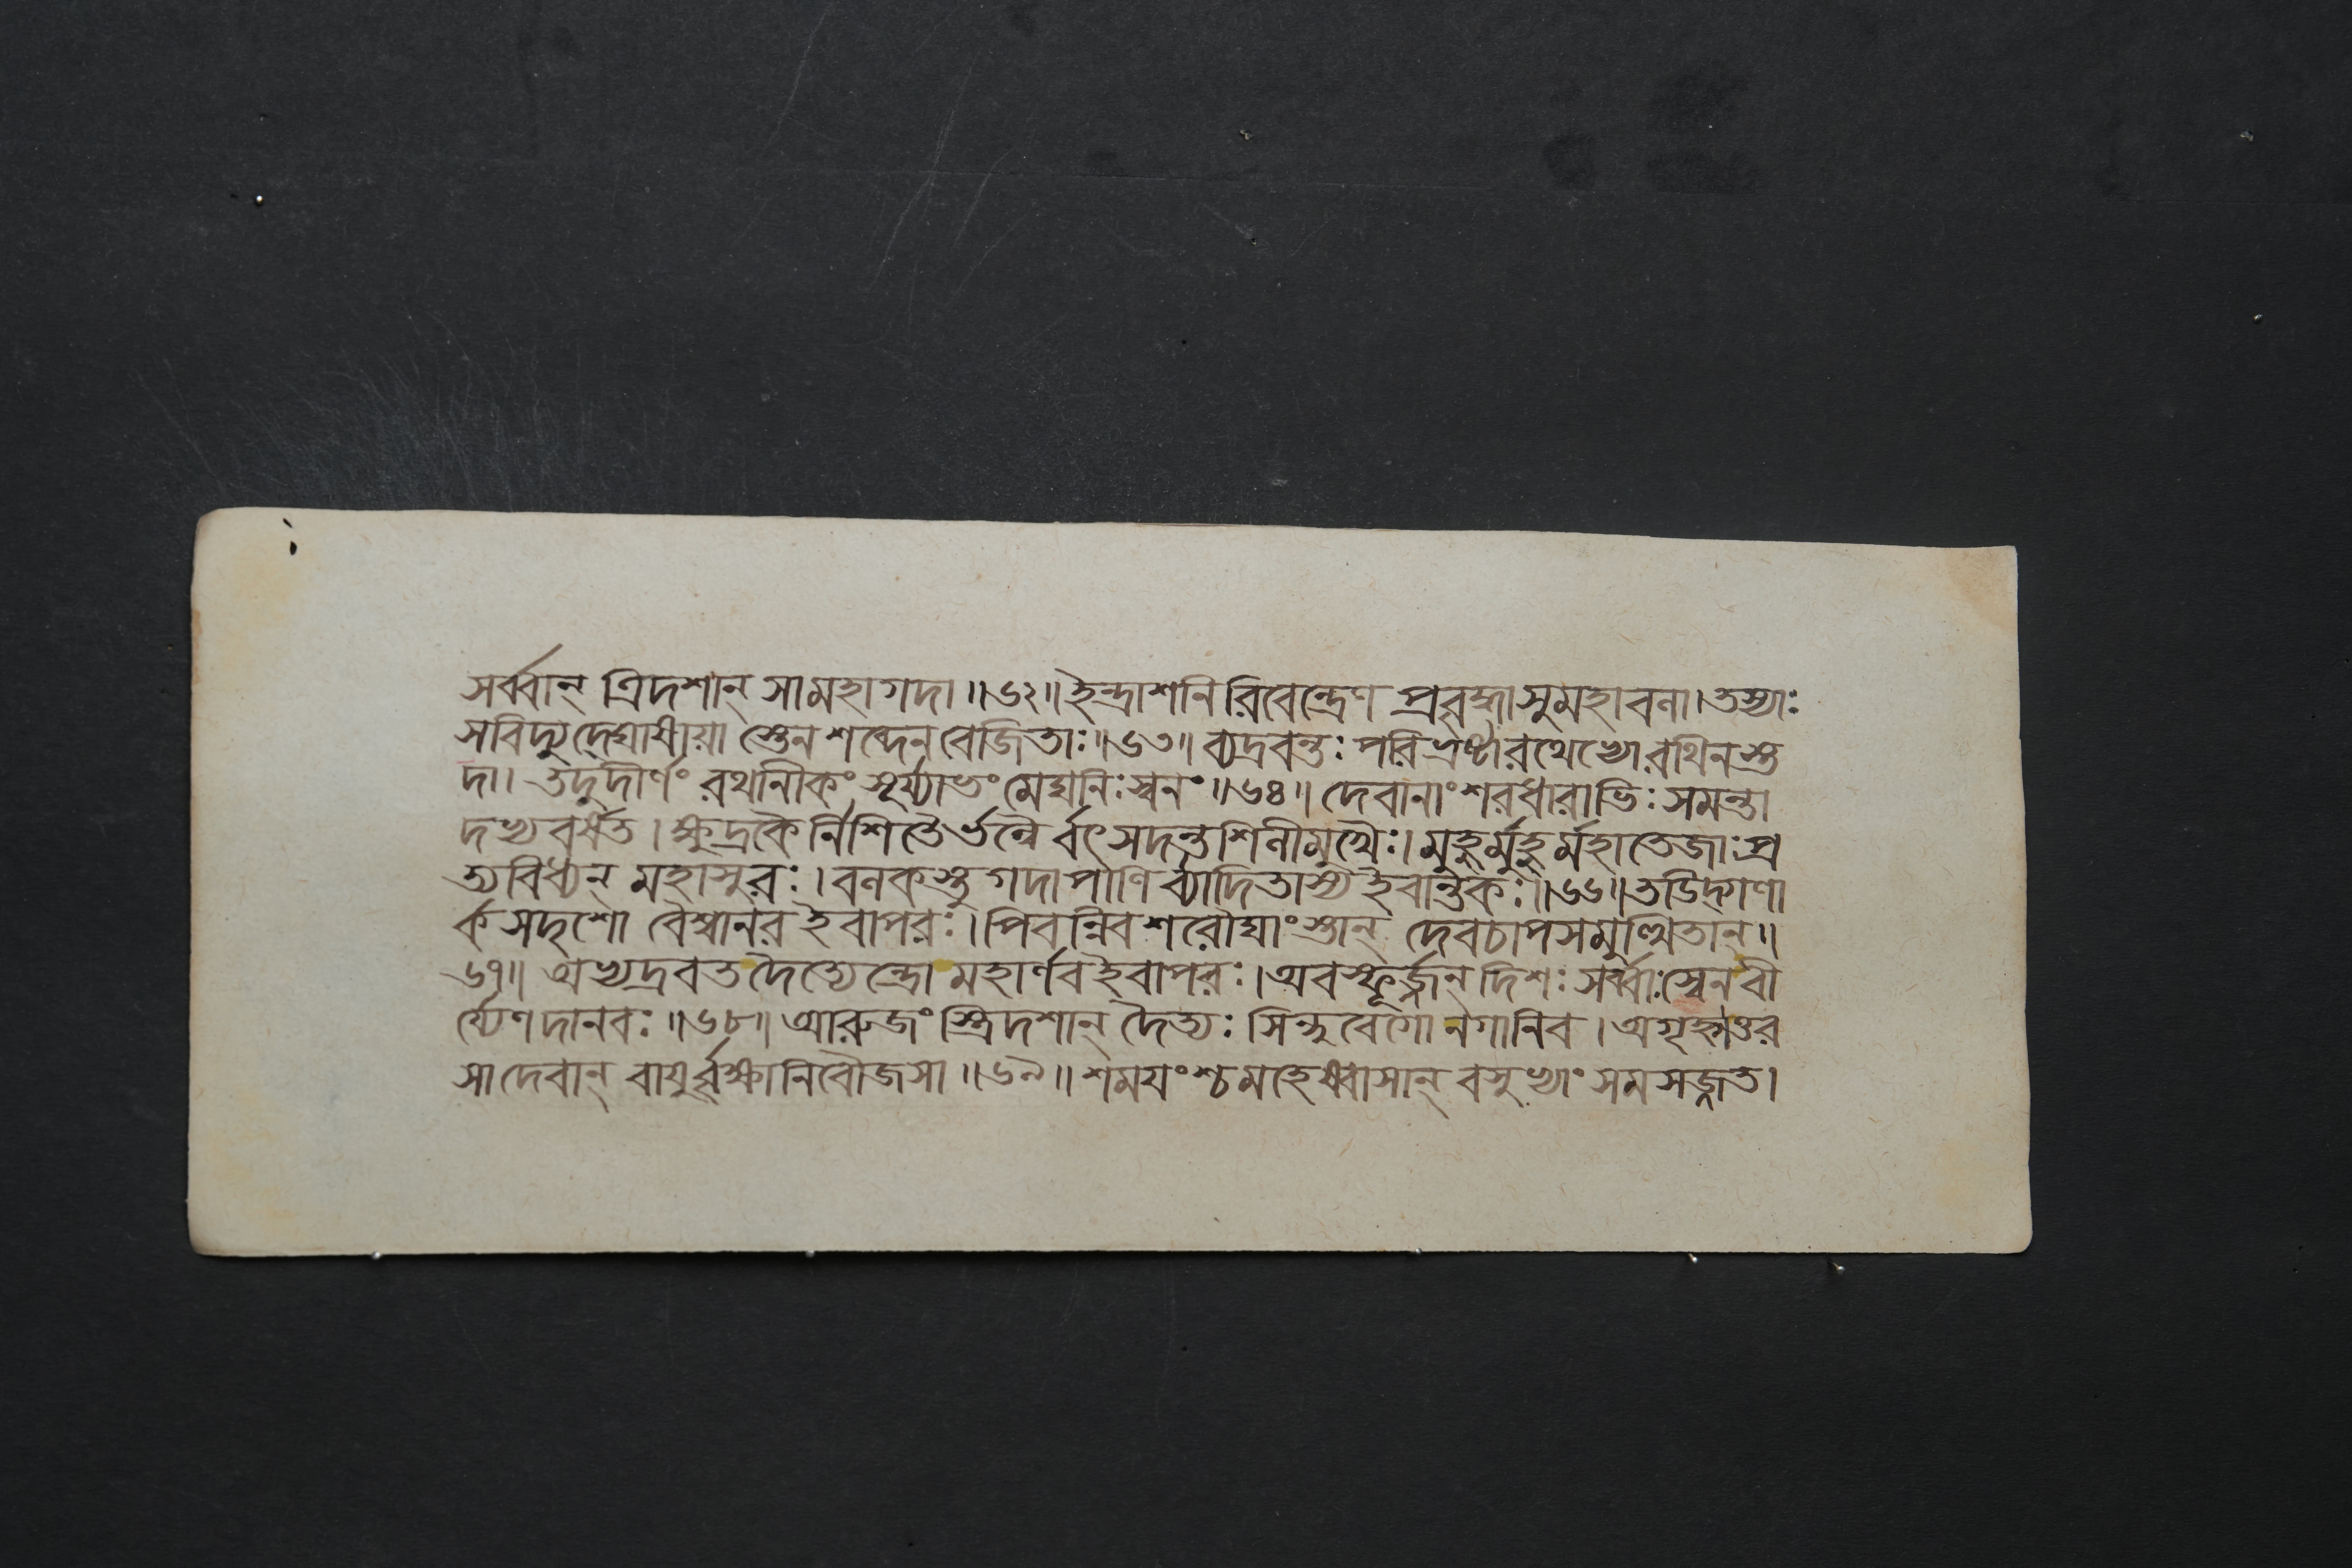 সর্ব্বান্ ত্রিদশান্ সামহাগদা॥৬২॥ইন্দ্রাশনিরিবেন্দ্রেণ প্রবৃদ্ধাসুমহাবলা।তস্যাঃ
সবিদ্যুদ্দেঘাষীয়া স্তেনশব্দেনবেজিতাঃ॥৬৩॥ব্যদ্রবন্তঃপরিভ্রষ্টারথেভ্যোরথিনস্ত
দা। তদুদীর্ণং রথানীকং সূর্য্যাভং মেঘনিঃস্বনং॥৬৪॥ দেবানাং শরধারাভিঃ সমন্তা
দভ্যবর্ষত। ক্ষুদ্রকৈর্নিশিতৈর্ভল্লৈর্বৎসদন্তশিলীমুখৈঃ। মুহুর্মুহুর্মহাতেজাঃপ্র
ত্যবিধ্যন্ মহাসুরঃ।বলকস্তু গদাপাণি র্ব্যাদিতাস্য ইবান্তকঃ॥৬৬॥তডিদ্গণা
র্কসদৃশো বৈশ্বানর ইবাপরঃ।পিবন্নিবশরৌঘাংস্তান্ দেবচাপসমুত্থিতান্॥
৬৭॥ অভ্যদ্রবত দৈত্যেন্দ্রো মহার্ণব ইবাপরঃ।অবস্ফূর্জ্জন্ দিশঃ সর্ব্বাঃস্বেনবী
র্য্যেণ দানবঃ॥৬৮॥আরুজং স্ত্রিদশান্ দৈত্যঃ সিন্ধুবেগো নগানিব। অগৃহ্নাত্তর
সাদেবান্ বায়ুর্বৃক্ষানিবৌজসা॥৬৯॥শময়ংশ্চমহেষ্বাসান্ বসুভ্যাং সমসজ্জত।